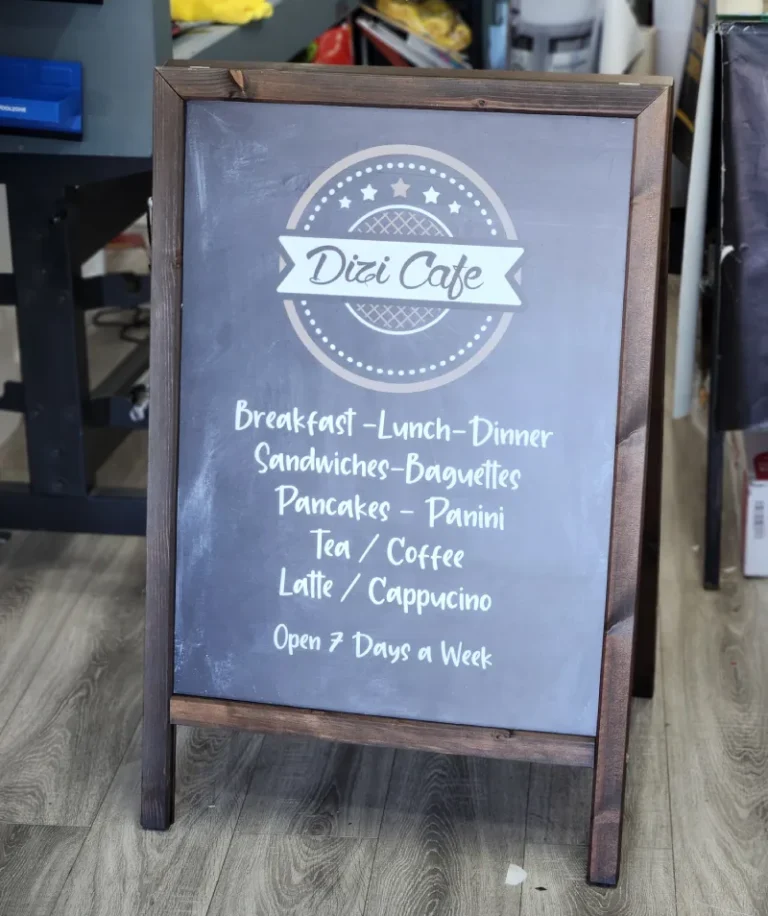 Dizi Cafe
Breakfast -Lunch-Dinner
Sandwiches-Baguettes
Pancakes - Panini
Tea / Coffee
Latte / Cappucino
Open 7 Days a Week